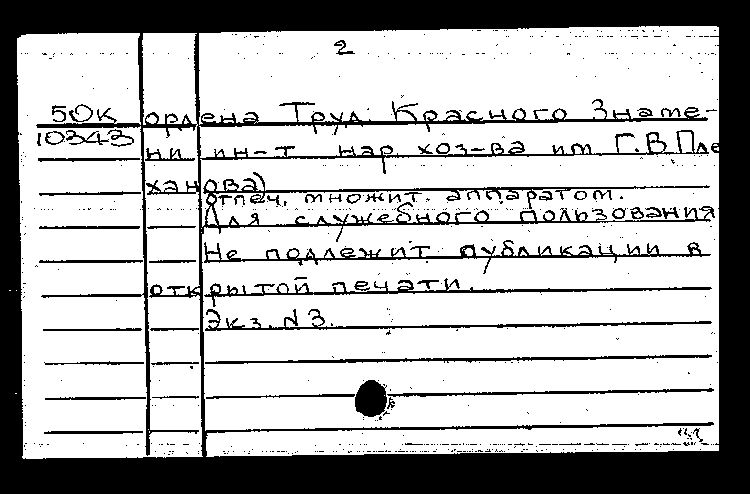 2
50к ордена Труд. Красного Знаме-
10343
ни ин-т нар хоз-ва им Г.В.Пле
ханова)
отпеч. множит. аппаратом.
Для служебного пользования
Не подлежит публикации в
открытой печати.
Экз. N 3.